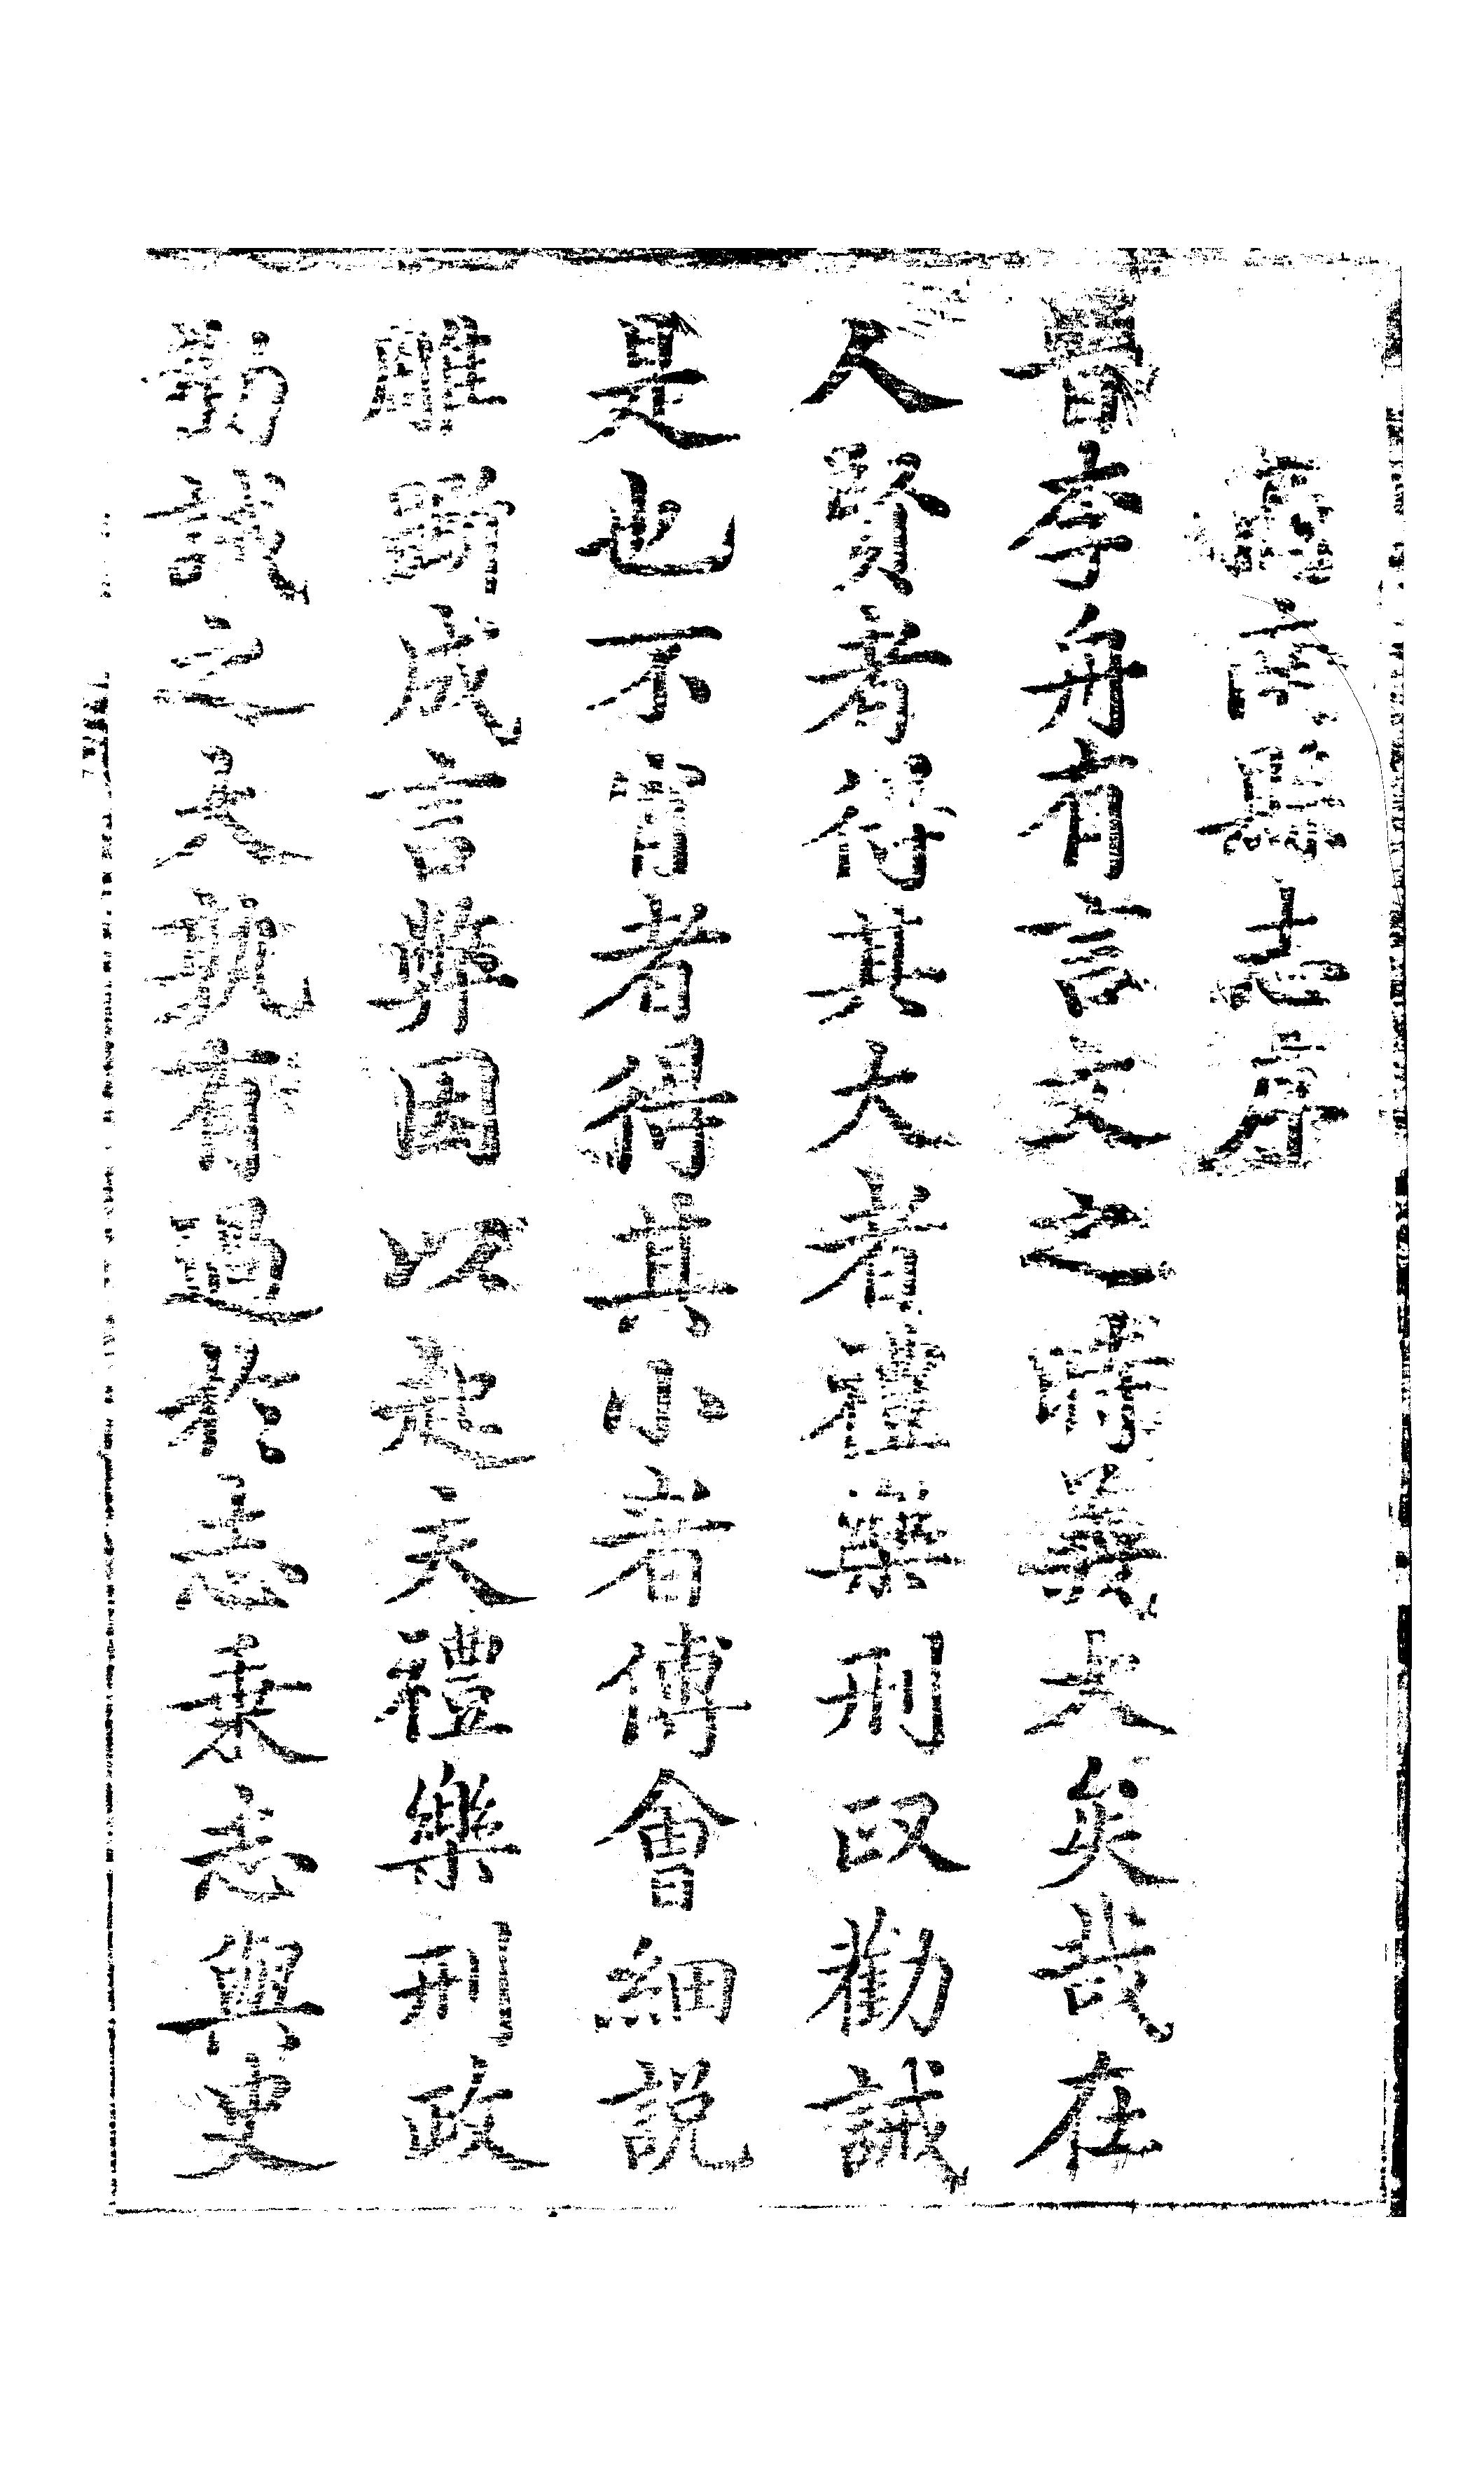 縣志序
昔李舟有言文之時義大矣哉在
人賢者得其大者禮樂刑政勸誡
是也不肖者得其小者傅會細說
雕斵成言弊因以起夫禮樂刑政
勸誡之大孰有過於志乘志與史